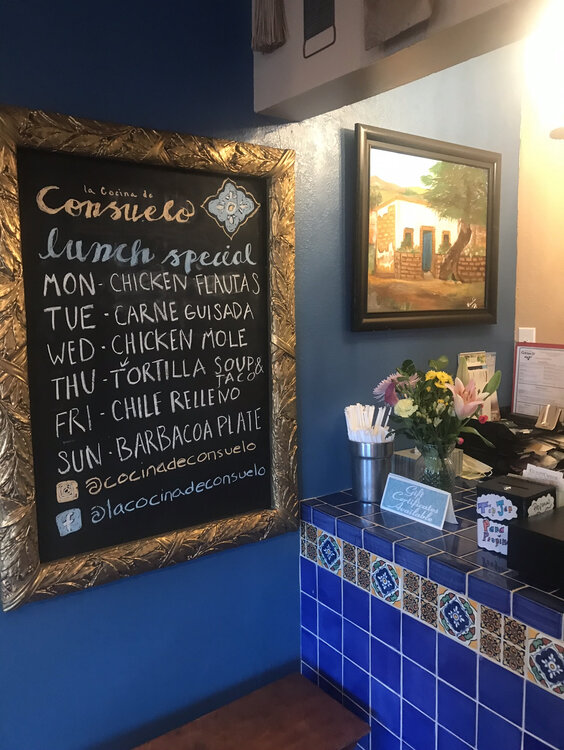 la Cocina de
Consuelo
lunch special
MON - CHICKEN FLAUTAS
TUE - CARNE GUISADA
WED - CHICKEN MOLE
THU - TORTILLA SOUP &
TACO
FRI - CHILE RELLENO
SUN - BARBACOA PLATE
@cocinadeconsuelo
@lacocinadeconsuelo
Gift
Certificates
Available
Tip Jar
Para
Propina